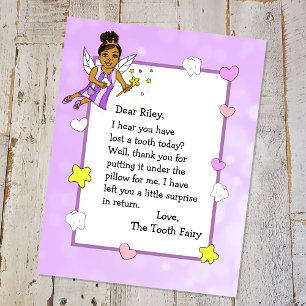 Dear Riley,
I hear you have
lost a tooth today?
Well, thank you for
putting it under the
pillow for me. I have
left you a little surprise
in return.
Love,
The Tooth Fairy